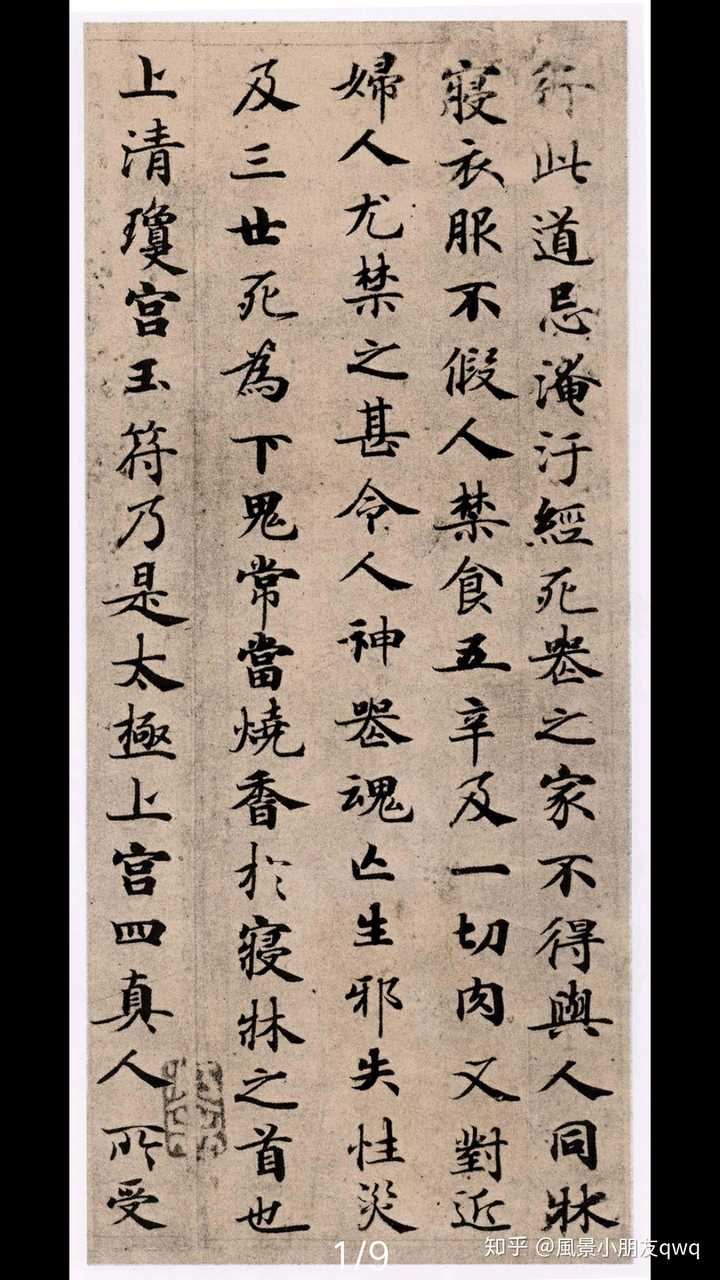 行此道忌淹汙經死喪之家不得與人同牀
寢衣服不假人禁食五辛及一切肉又對近
婦人尤禁之甚令人神喪魂亡生邪失性災
及三世死為下鬼常當燒香於寢牀之首也
上清瓊宮玉符乃是太極上宮四真人所受
1/9
知乎 @風景小朋友qwq